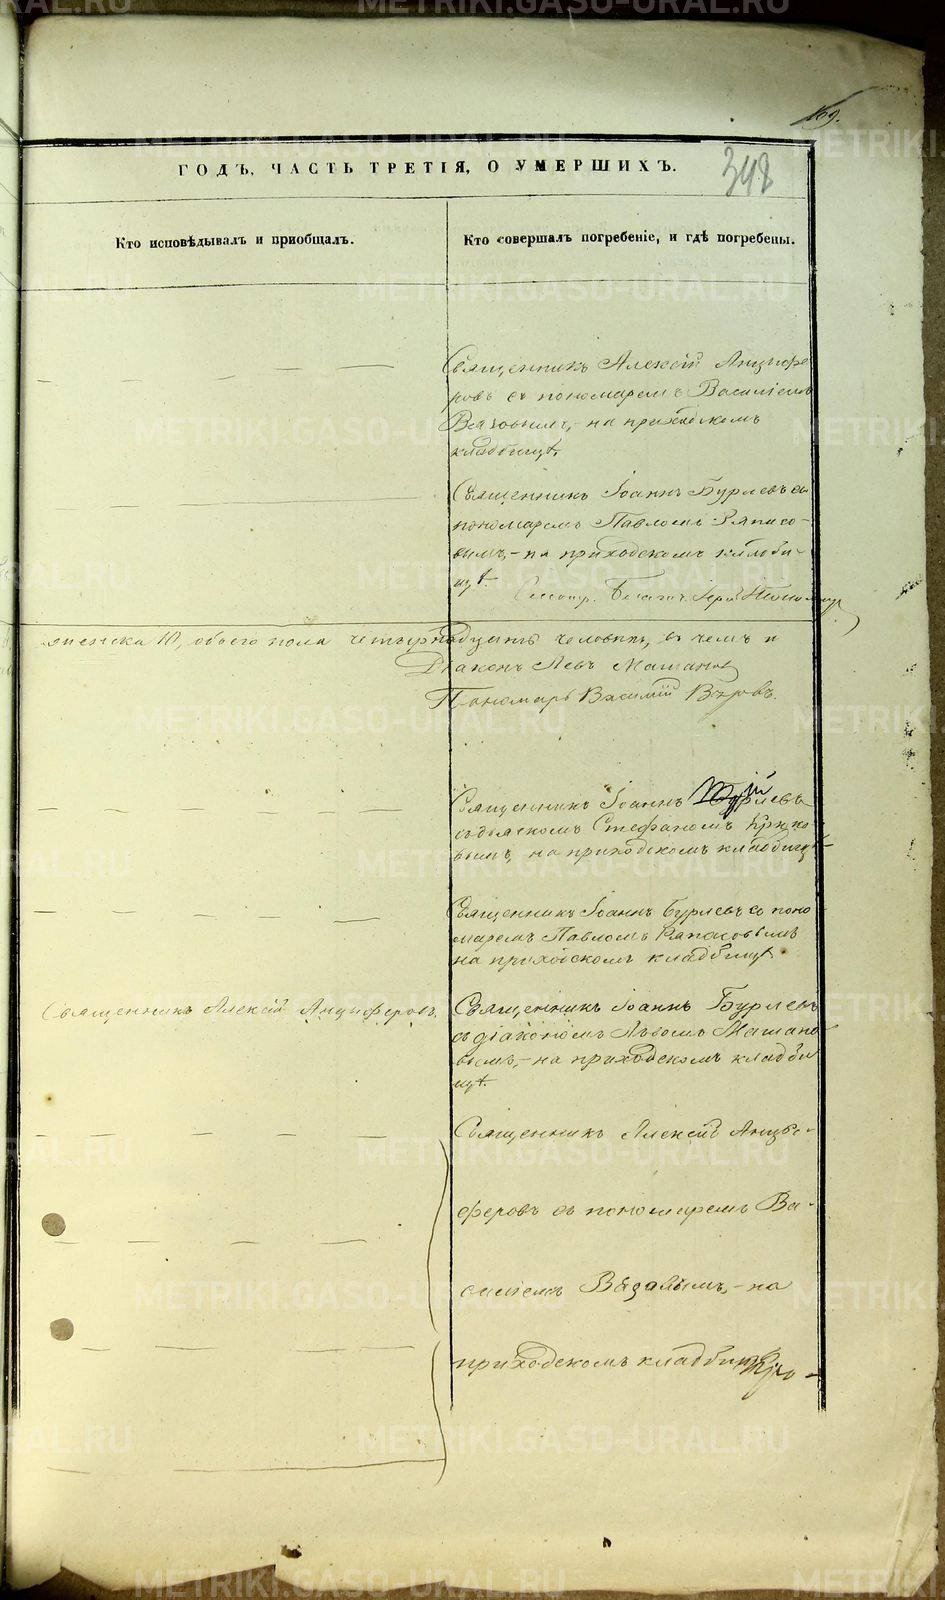 169.
ГОДЪ, ЧАСТЬ ТРЕТІЯ, О УМЕРШИХЪ.
348
Кто исповѣдывалъ и пріобщалъ.
Кто совершалъ погребеніе, и гдѣ погребены.
Священникъ Алексій Анциофе
ровъ съ пономаремъ Василіемъ
на приходскомъ
кладбищѣ.
Священникъ Іоаннъ Бурлевъ съ
пономаремъ Павломъ
вымъ, на приходскомъ кладби-
щѣ.
обоего пола четырнадцать человѣкъ, въ чемъ и
Діаконъ Левъ
Пономарь Василій
Священникъ Іоаннъ Бурлевъ
съ дьячкомъ Стефаномъ
вымъ, на приходскомъ кладбищѣ
Священникъ Іоаннъ Бурлевъ со поно
маремъ Павломъ
на приходскомъ кладбищѣ
Священникъ Алексій Анциферовъ.
Священникъ Іоаннъ Бурлевъ
съ діакономъ Львомъ
вымъ, на приходскомъ кладби
щѣ.
Священникъ Алексій Анци-
феровъ съ пономаремъ Ва-
силіемъ на
приходскомъ кладбищѣ
METRIKI.GASO-URAL.RU